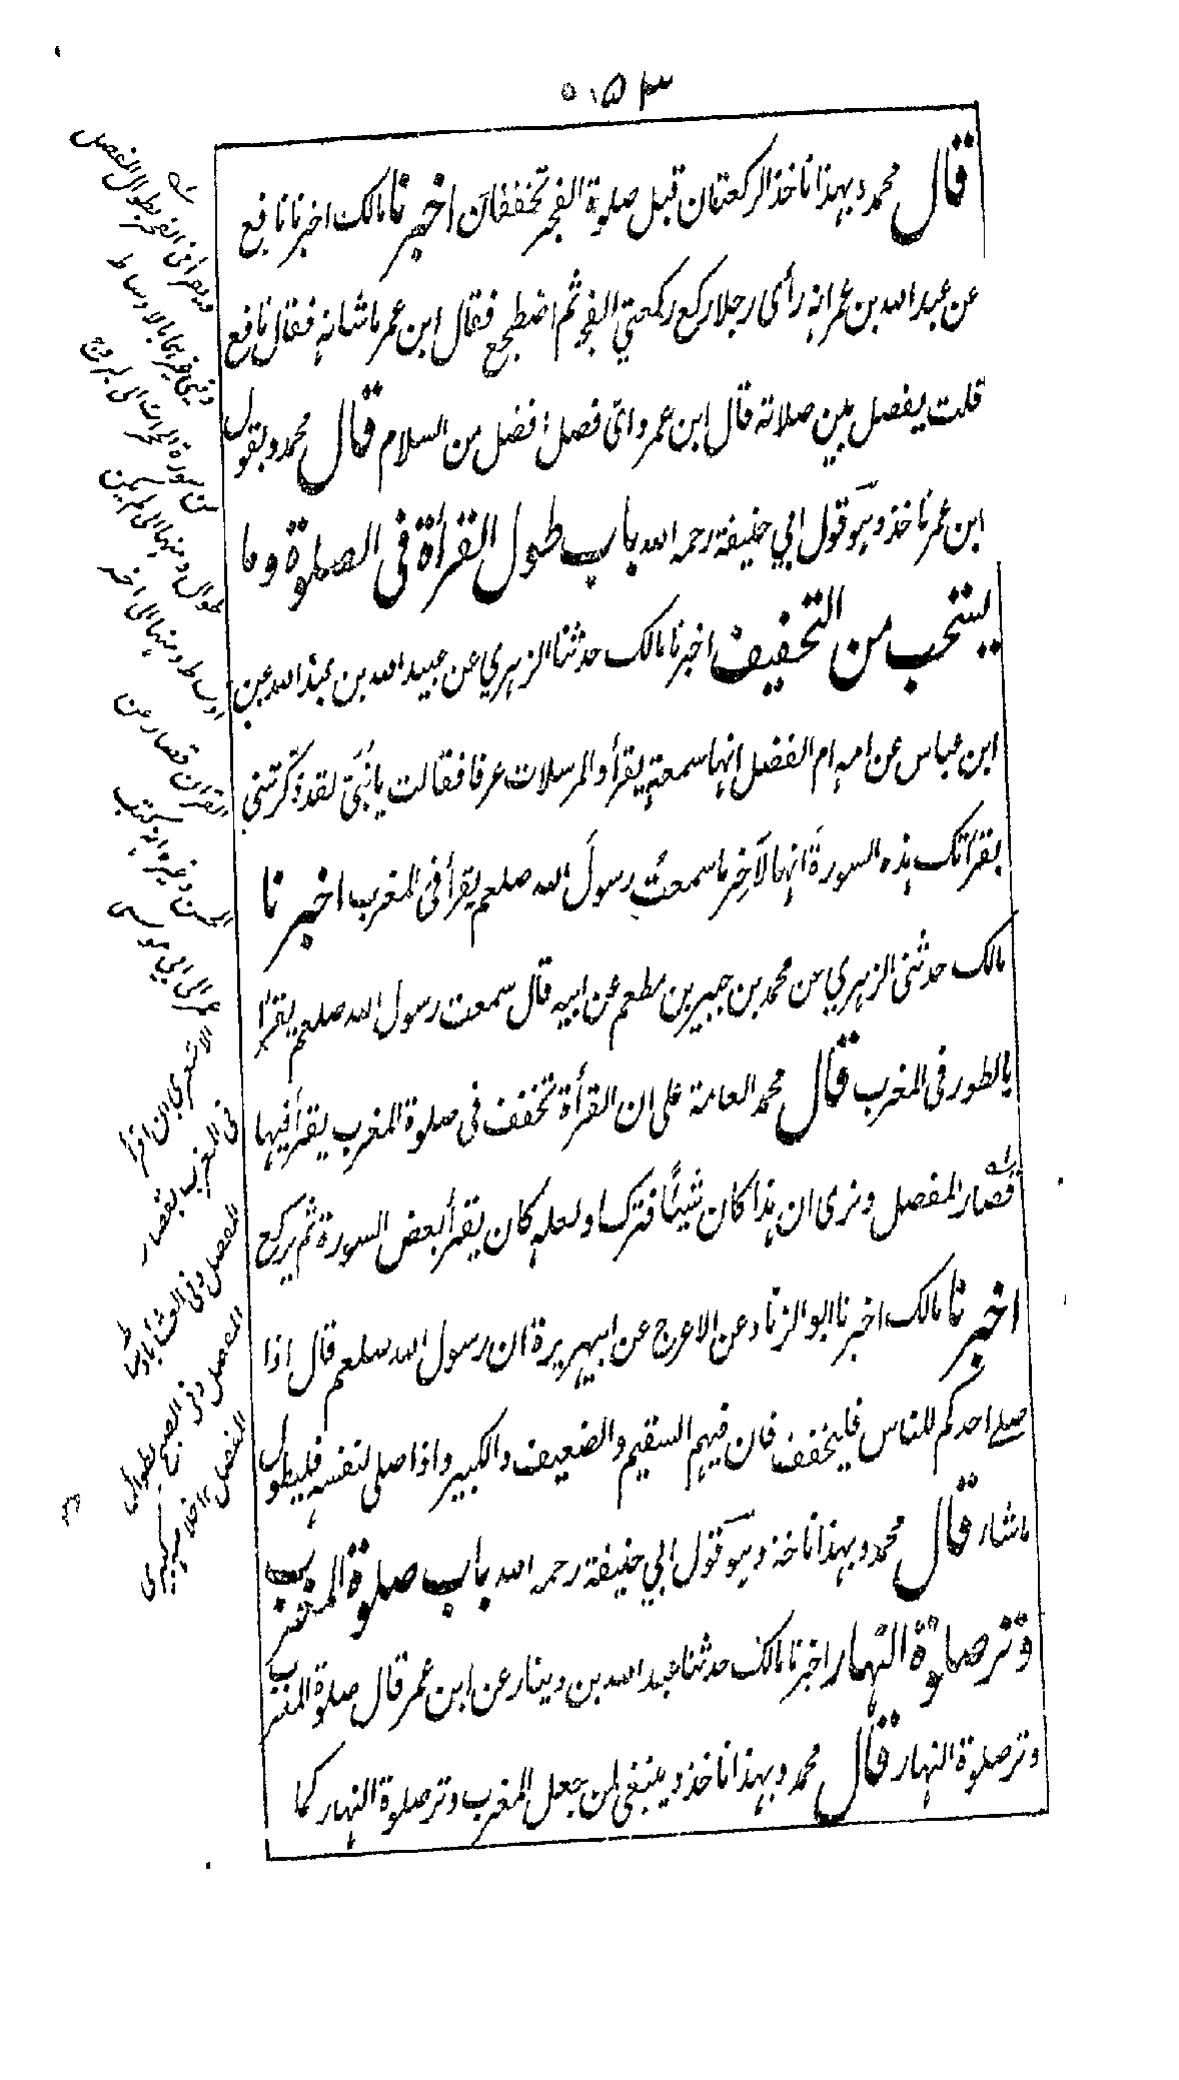 قال محمد وبهذا ناخذ الركعتان قبل صلوة الفجر تخففان اخبرنا مالك اخبرنا نافع
عن عبد الله بن عمر انه رأى رجلا ركع ركعتي الفجر ثم اضطجع فقال ابن عمر ما شانه فقال نافع
قلت يفصل بين صلاته قال ابن عمر واىّ فصل افضل من السلام قال محمد وبقول
ابن عمر ناخذ وهو قول ابي حنيفة رحمه الله باب طول القرأة فى الصلوة وما
يستحب من التخفيف اخبرنا مالك حدثنا الزهري عن عبيد الله بن عبد الله عن
ابن عباس عن امه ام الفضل انها سمعته يقرأ والمرسلات عرفا فقالت يا بُنَيّ لقد ذكّرتني
بقرأتك هذه السورةَ انها لآخِر ما سمعتُ رسولَ الله صلعم يقرأ فى المغرب اخبرنا
مالك حدثنى الزهري عن محمد بن جبير بن مطعم عن ابيه قال سمعت رسول الله صلعم يقرأ
بالطور فى المغرب قال محمد العامة على ان القرأة تخفف فى صلوة المغرب يقرأ فيها
قصار المفصل ونرى ان هذا كان شيئًا فترك او لعله كان يقرأ بعض السورة ثم يركع
اخبرنا مالك اخبرنا ابو الزناد عن الاعرج عن ابيهريرة ان رسول الله صلعم قال اذا
صلى احدكم للناس فليخفف فان فيهم السقيم والضعيف والكبير واذا صلى لنفسه فليطول
ما شاء قال محمد وبهذا ناخذ وهو قول ابي حنيفة رحمه الله باب صلوة المغرب
وتر صلوة النهار اخبرنا مالك حدثنا عبد الله بن دينار عن ابن عمر قال صلوة المغرب
وتر صلوة النهار قال محمد وبهذا ناخذ وينبغى لمن جعل المغرب وتر صلوة النهار كما
الفجر بطوال المفصل
من سورة الحجرات الى البروج
طوال ومنها الى لم يكن
اوساط ومنها الى اخر
القران قصار عن
عمر الى ابي موسى
الاشعرى ان اقرأ
فى المغرب بقصار
المفصل وفى العشا باوساط
المفصل وفى الصبح بطوال
المفصل